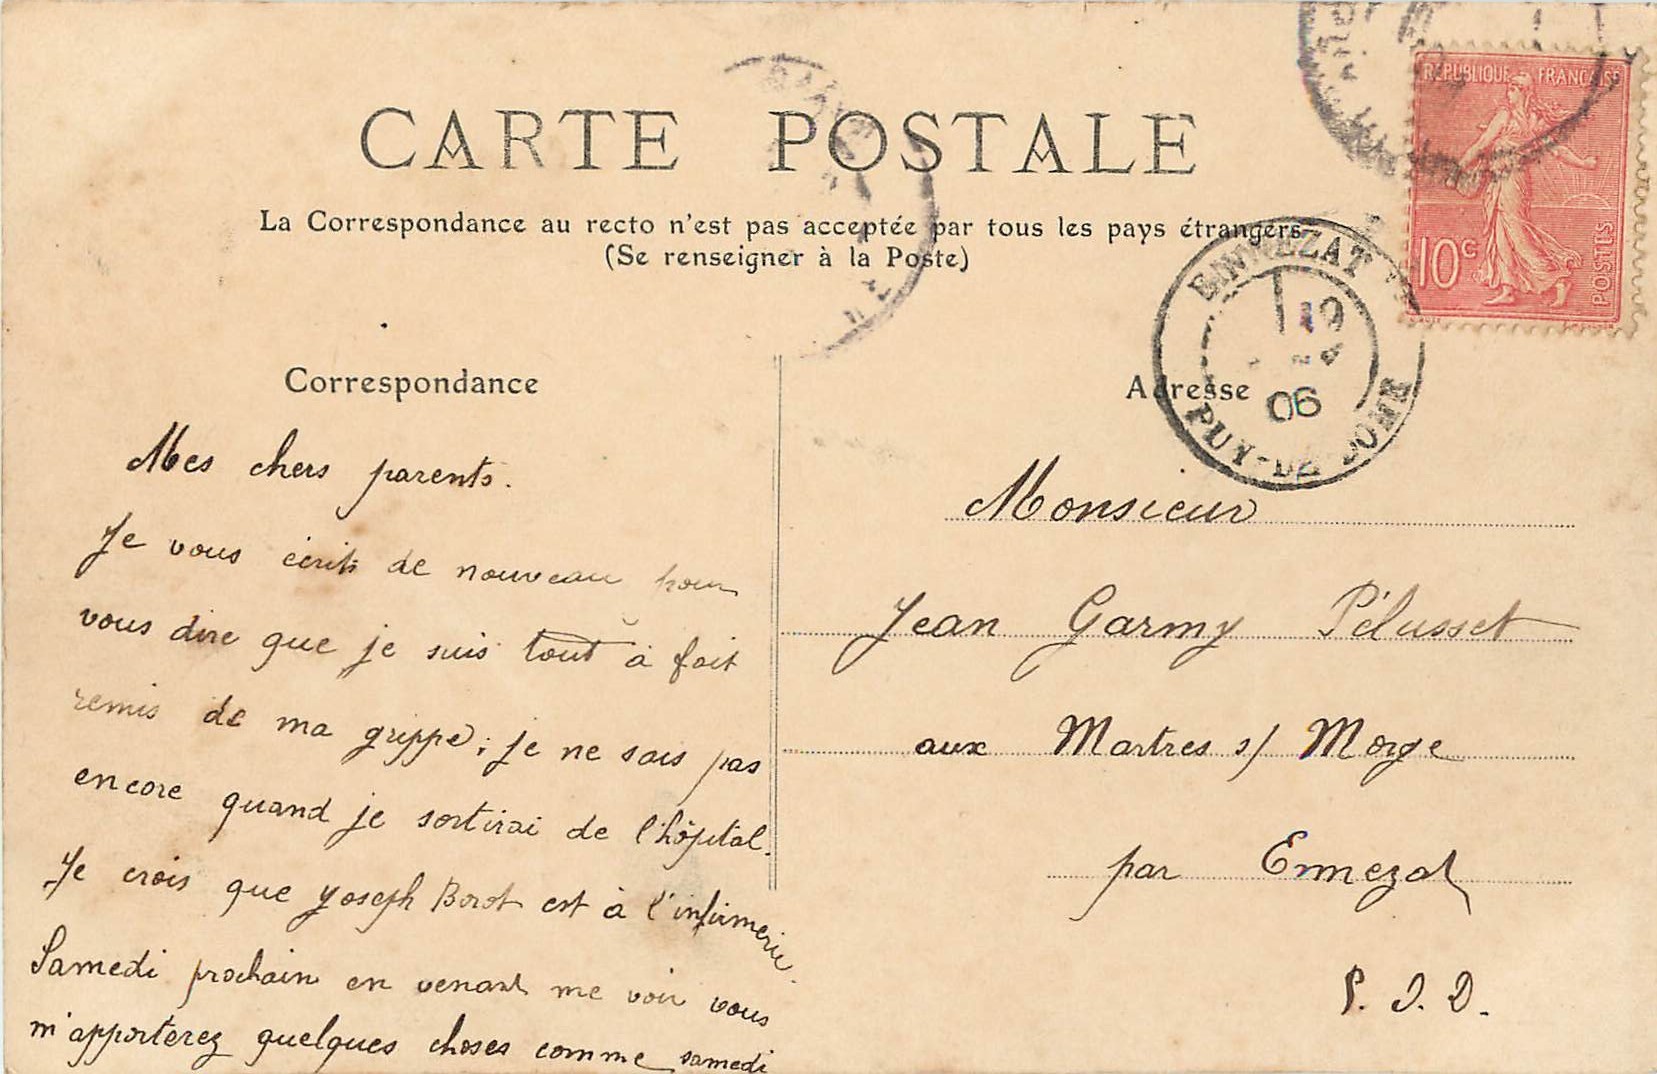 CARTE POSTALE
La Correspondance au recto n'est pas acceptée par tous les pays étrangers
(Se renseigner à la Poste)
RÉPUBLIQUE FRANÇAISE
10c
POSTES
ENNEZAT
06
PUY-DE-DOME
Correspondance
Mes chers parents.
Je vous écrits de nouveau pour
vous dire que je suis tout à fait
remis de ma grippe; je ne sais pas
encore quand je sortirai de l'hôpital.
Je crois que Joseph Borot est à l'infirmerie
Samedi prochain en venant me voir vous
m'apporterez quelques choses comme samedi
Adresse
Monsieur
Jean Garmy Pélusset
aux Martres s/ Morge
par Ennezat
P. D. D.